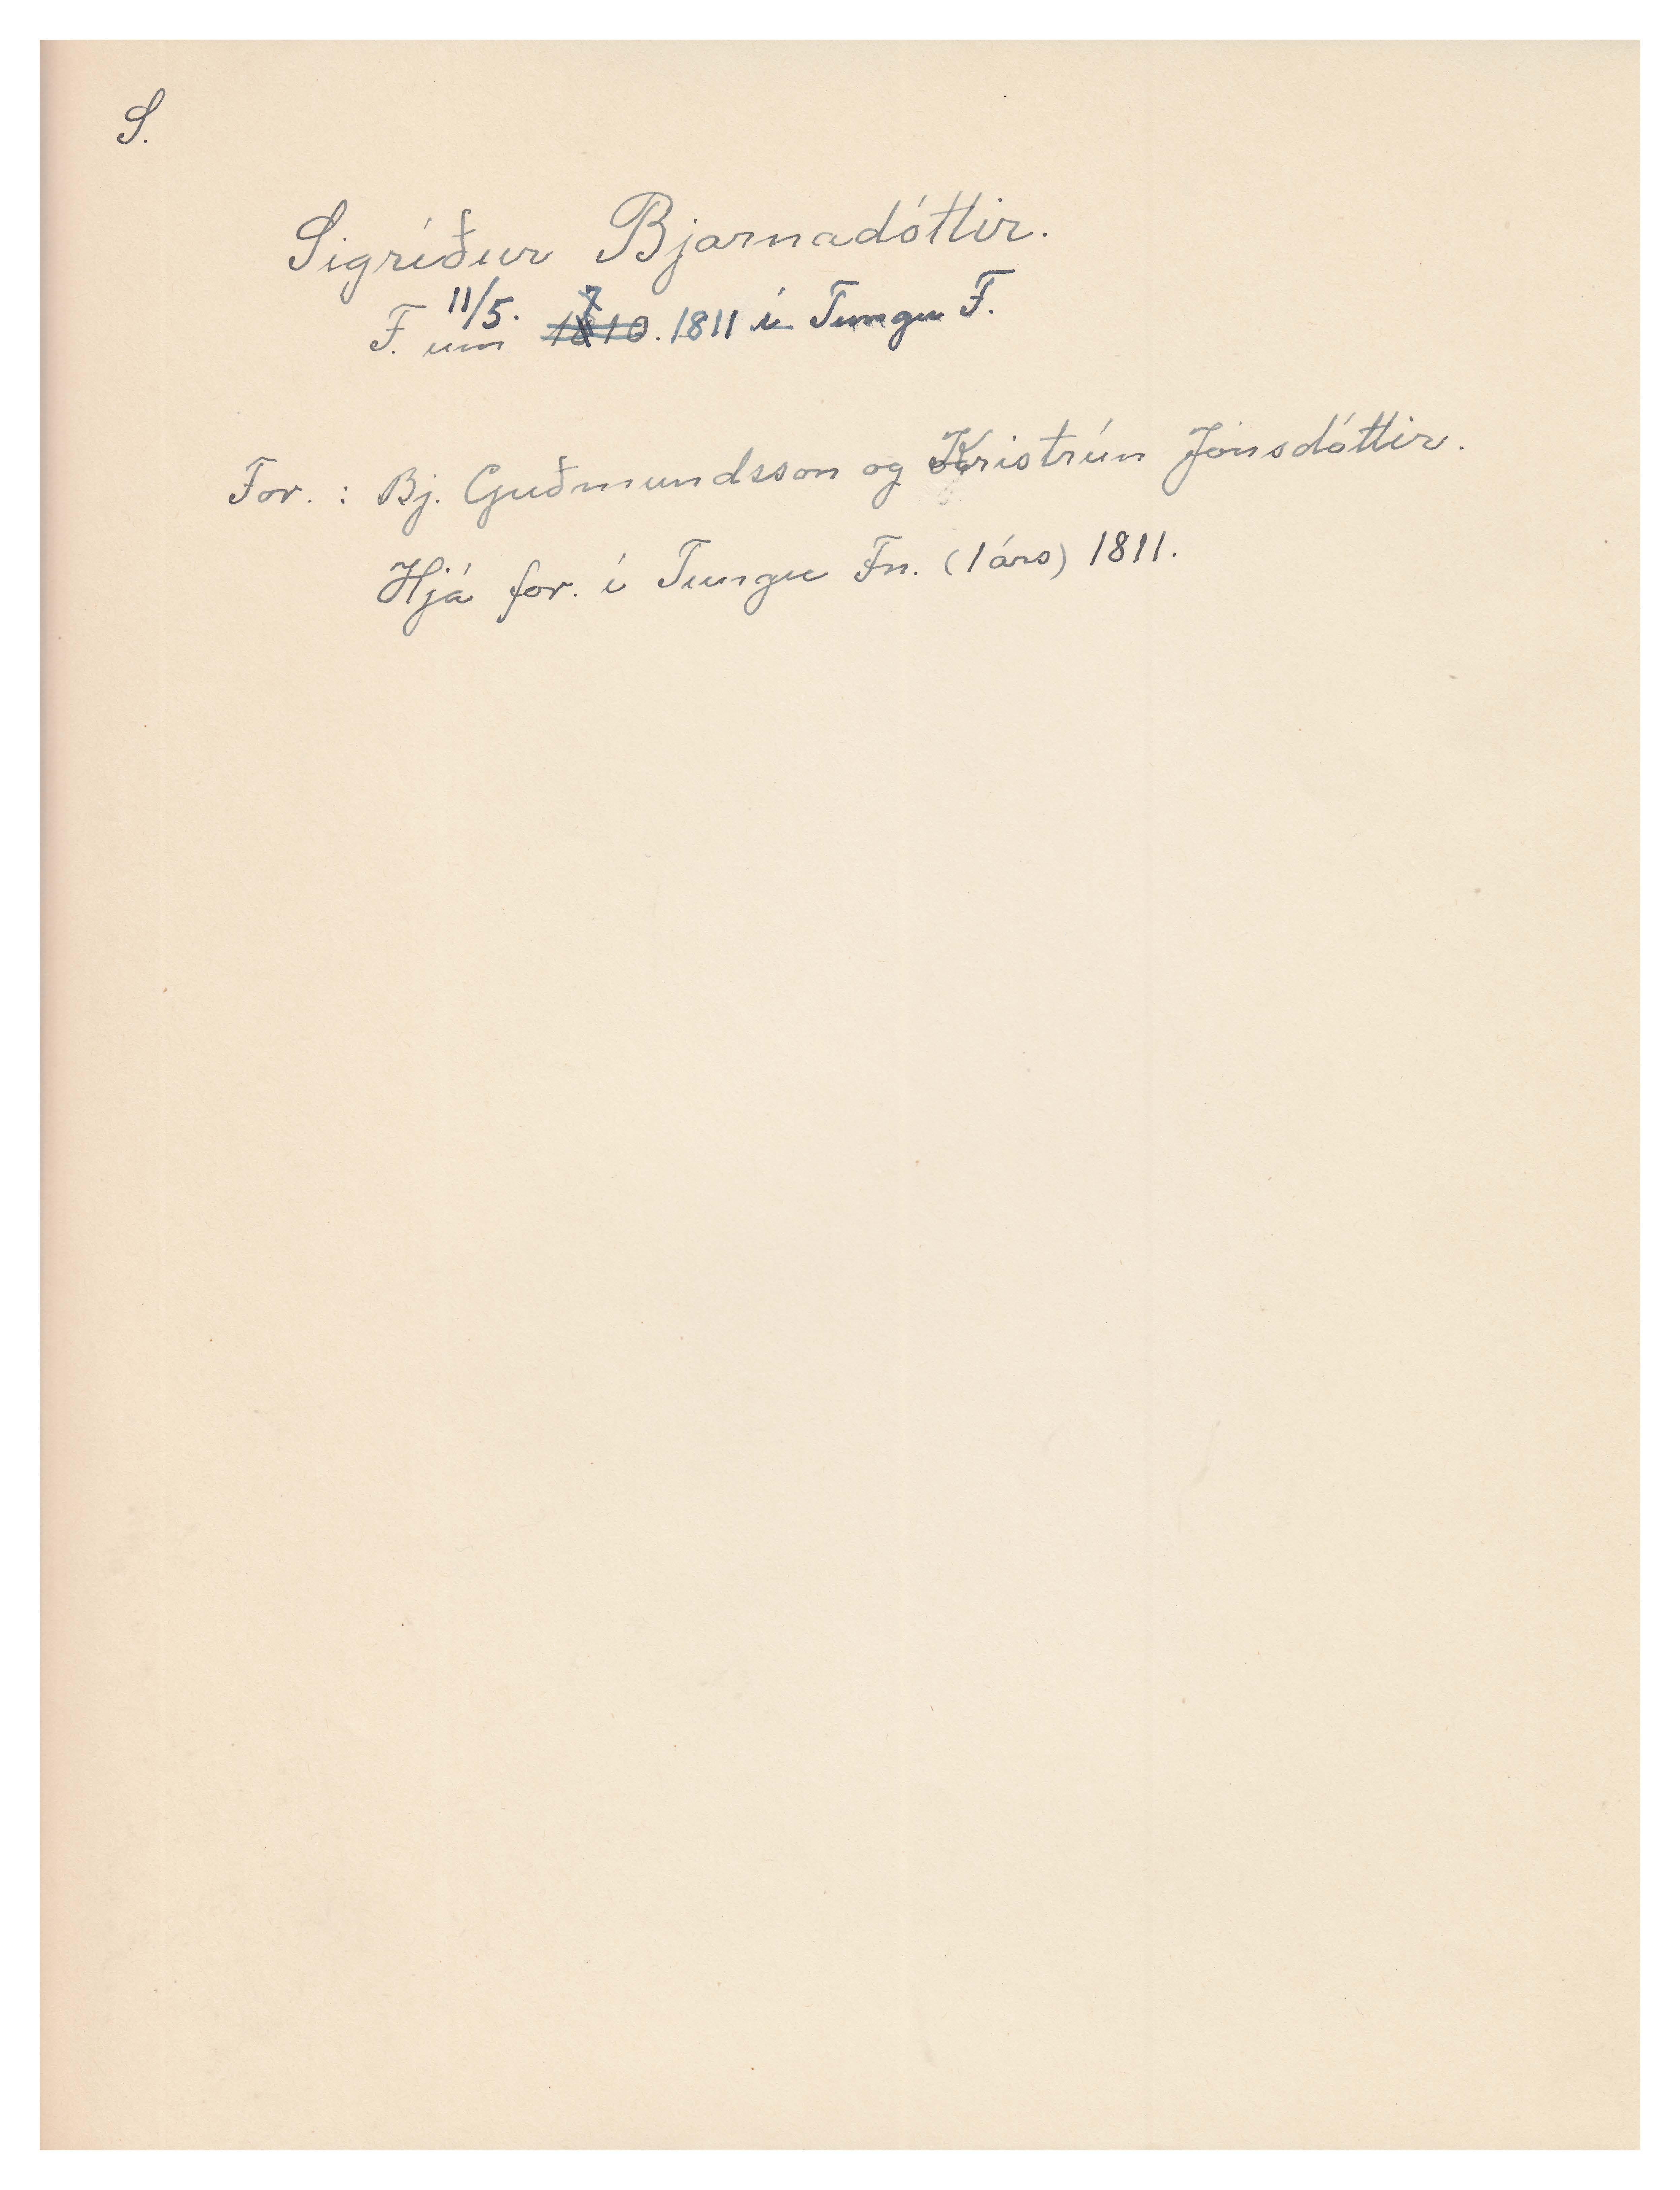 S.
Sigríður Bjarnadóttir.
F. um 11/5. 1810. 1811 í Tungu F.
For. : Bj. Guðmundsson og Kristrún Jónsdóttir.
Hjá for. í Tungu Fn. (1árs) 1811.